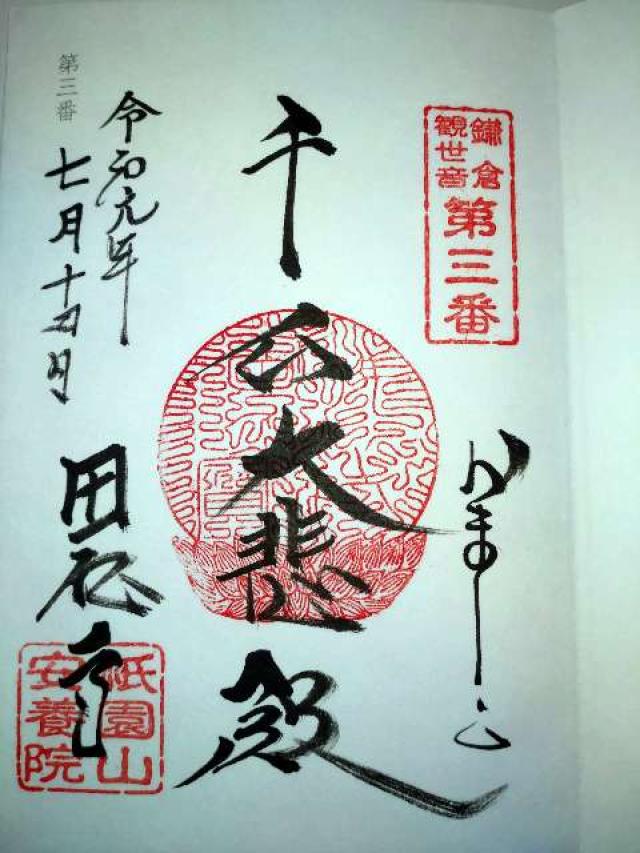 鎌倉
觀世音
第三番
かまくら
大悲殿
令和元年
七月十四日
祇園山
安養院
第三番